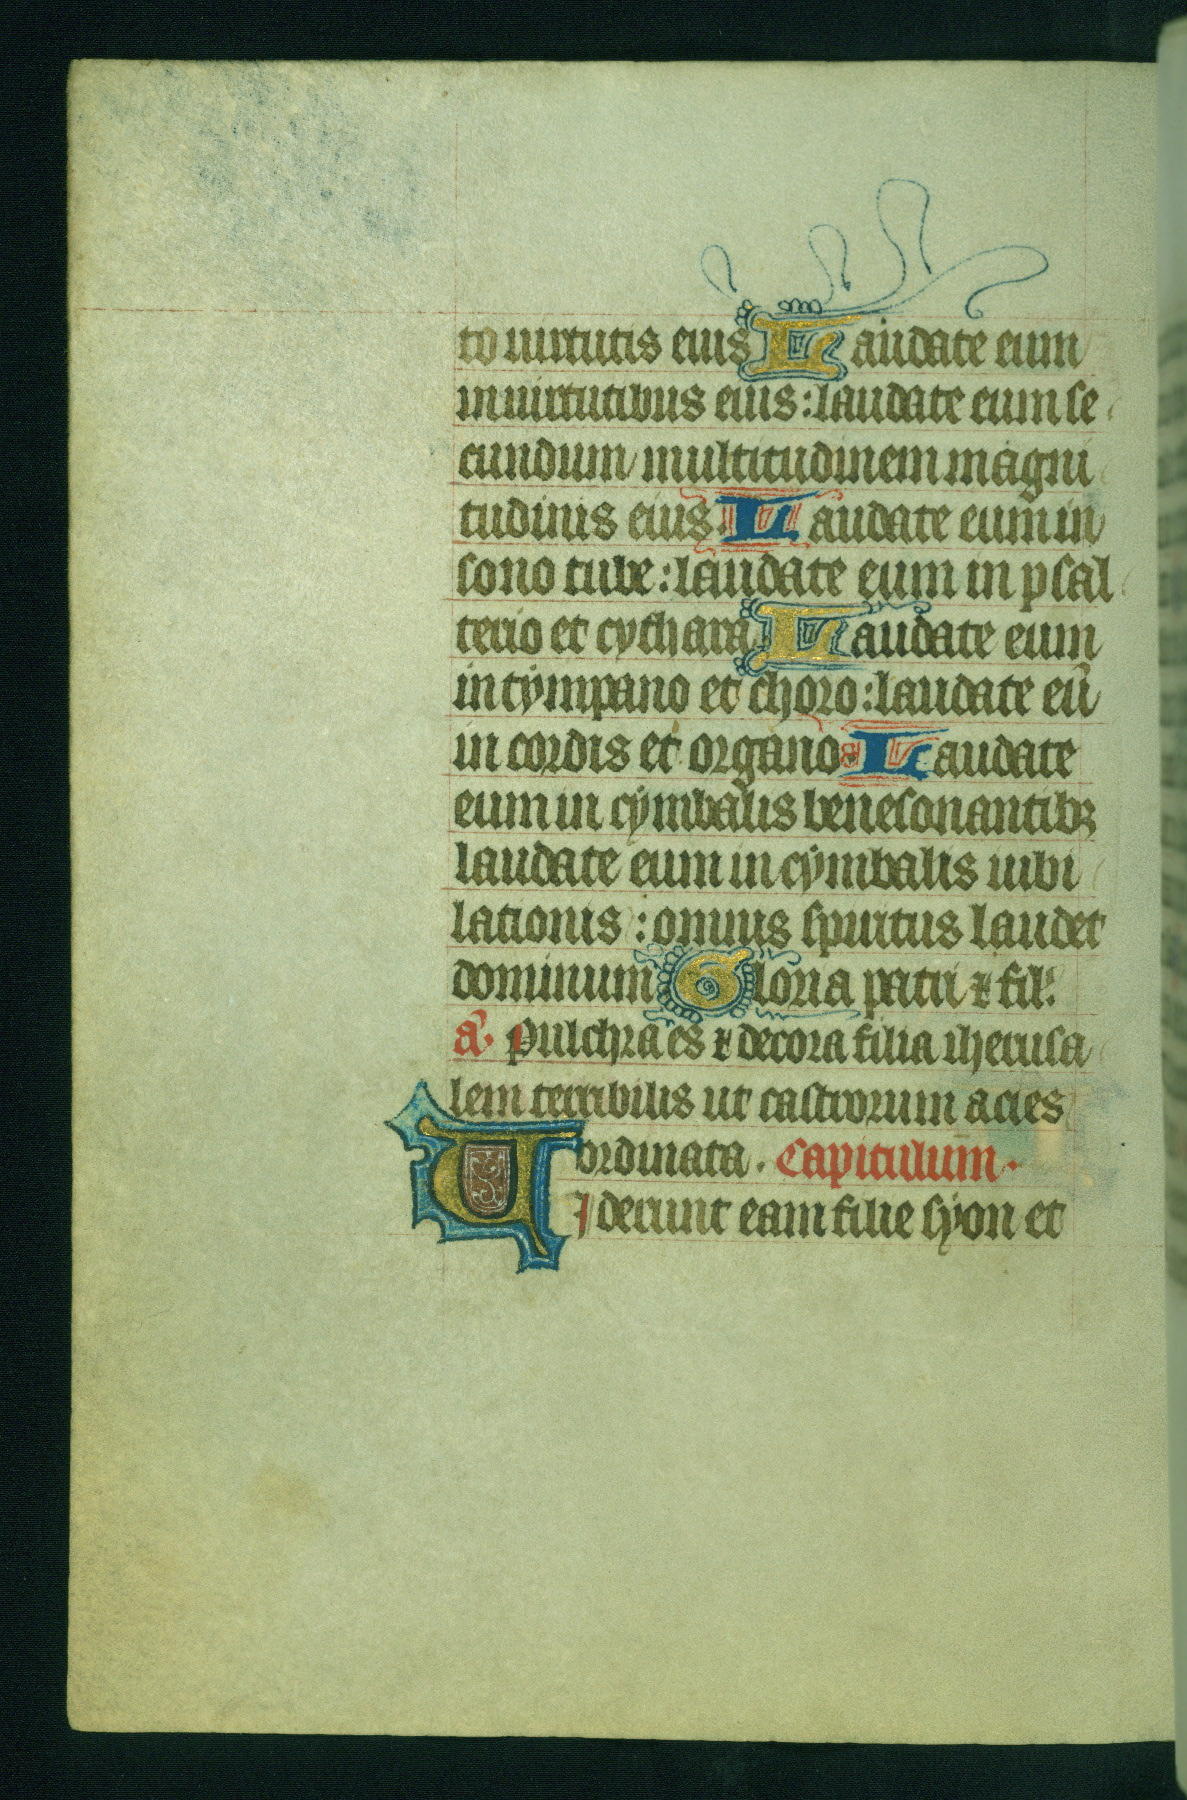 to uirtutis eius Laudate eum
in uirtutibus eius : laudate eum se
cundum multitudinem magni
tudinis eius. Laudate eum in
sono tube : laudate eum in psal
terio et cythara. Laudate eum
in tympano et choro : laudate eũ
in cordis et organo Laudate
eum in cymbalis benesonantibꝫ
laudate eum in cymbalis iubi
lationis : omnis spiritus laudet
dominum Gloria patri ⁊ fil.
añ. Pulchra es ⁊ decora filia iherusa
lem terribilis ut castrorum acies
ordinata. Capitulum.
Uiderunt eam filie syon et